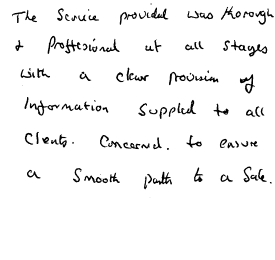 The Service provided was thorough
& Proffesional at all stages
with a clear provision of
Information Suppled to all
Clients. Concerned. to ensure
a Smooth path to a Sale.